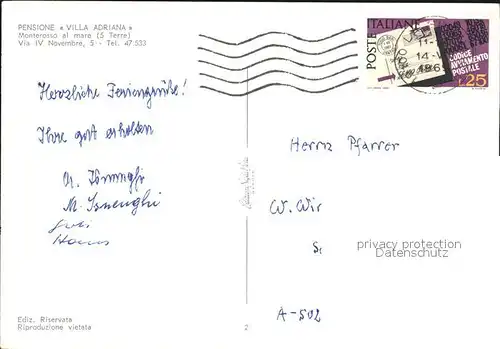 PENSIONE "VILLA ADRIANA"
Monterosso al mare (5 Terre)
Via IV Novembre, 5 - Tel. 47.533
POSTE ITALIANE
11-
14-V
196
CODICE
AVVIAMENTO
POSTALE
L.25
Herzliche Feriengrüße!
Ihre gut erholten
Hans
Herrn Pfarrer
W. Wir
S
privacy protection
Datenschutz
A-502
Ediz. Riservata
Riproduzione vietata
2